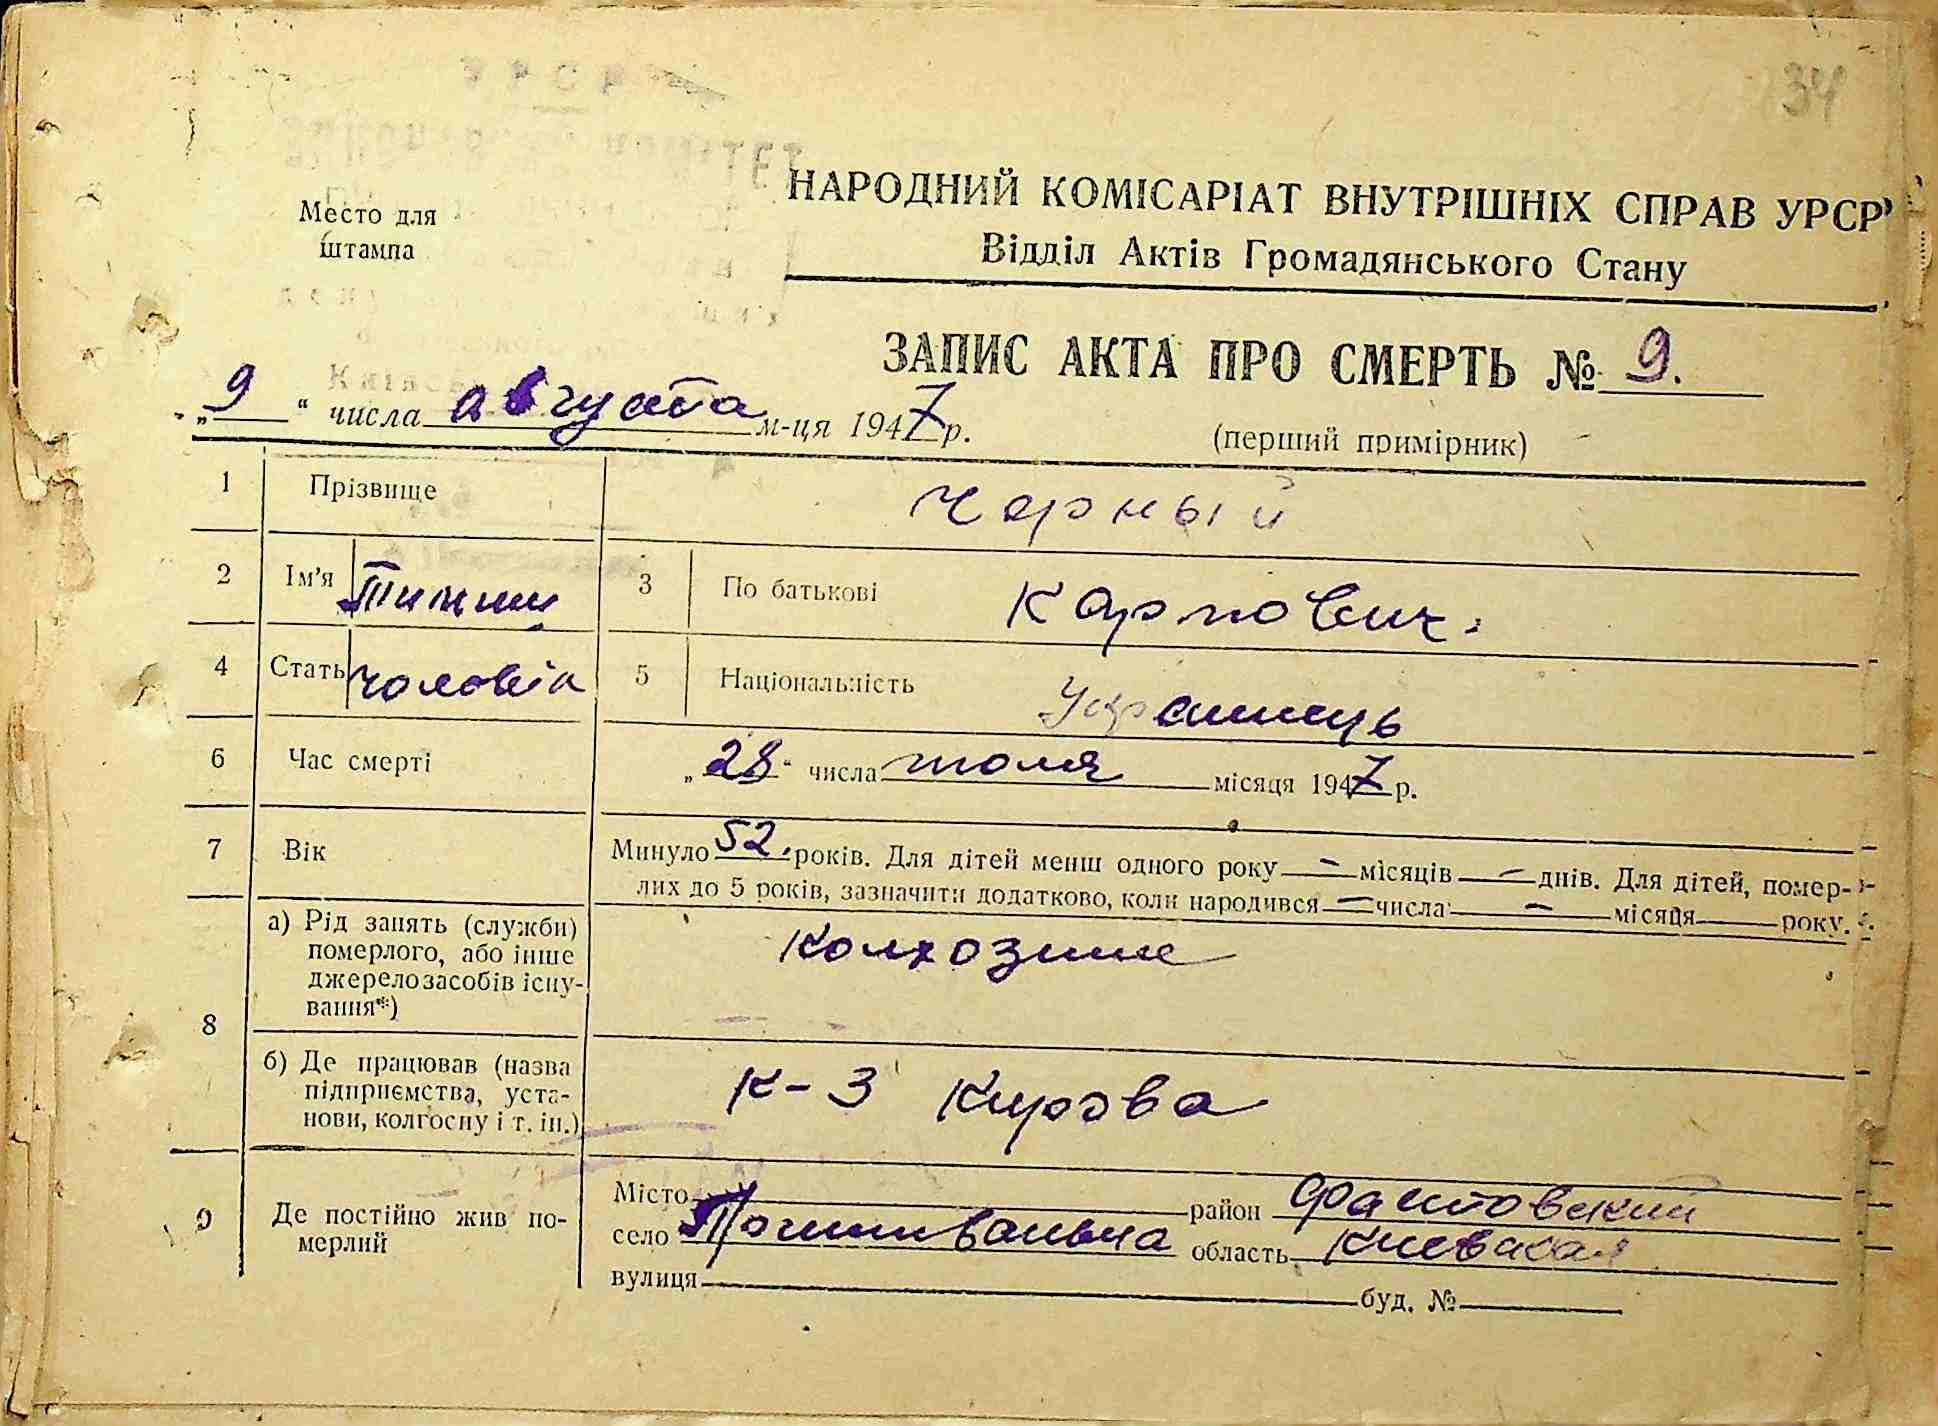 34
Место для
штампа
НАРОДНИЙ КОМІСАРІАТ ВНУТРІШНІХ СПРАВ УРСР
Відділ Актів Громадянського Стану
ЗАПИС АКТА ПРО СМЕРТЬ № 9.
„9“ числа августа м-ця 1947 р.
(перший примірник)
1 Прізвище Чорный
2 Ім'я 3 По батькові Карпович.
4 Стать чоловік 5 Національність Українець
6 Час смерті „28“ числа июля місяця 1947 р.
7 Вік Минуло 52. років. Для дітей менш одного року — місяців — днів. Для дітей, помер-
лих до 5 років, зазначити додатково, коли народився — числа — місяця року.
8 а) Рід занять (служби)
померлого, або інше
джерело засобів існу-
вання*)
Колхозник
б) Де працював (назва
підприємства, уста-
нови, колгоспу і т. ін.)
К-З Кирова
9 Де постійно жив по-
мерлий
Місто район Фастовский
село область Киевская
вулиця буд. №